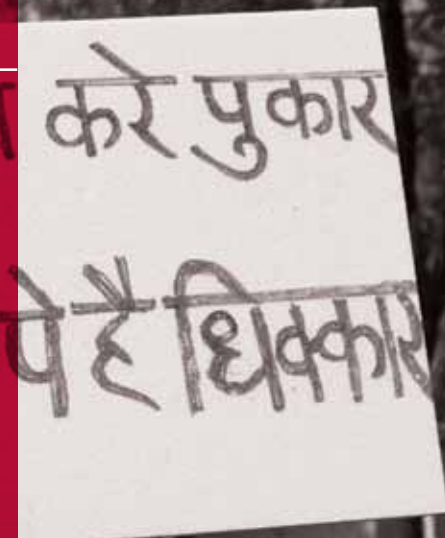 करे पुकार
पे है धिक्कार